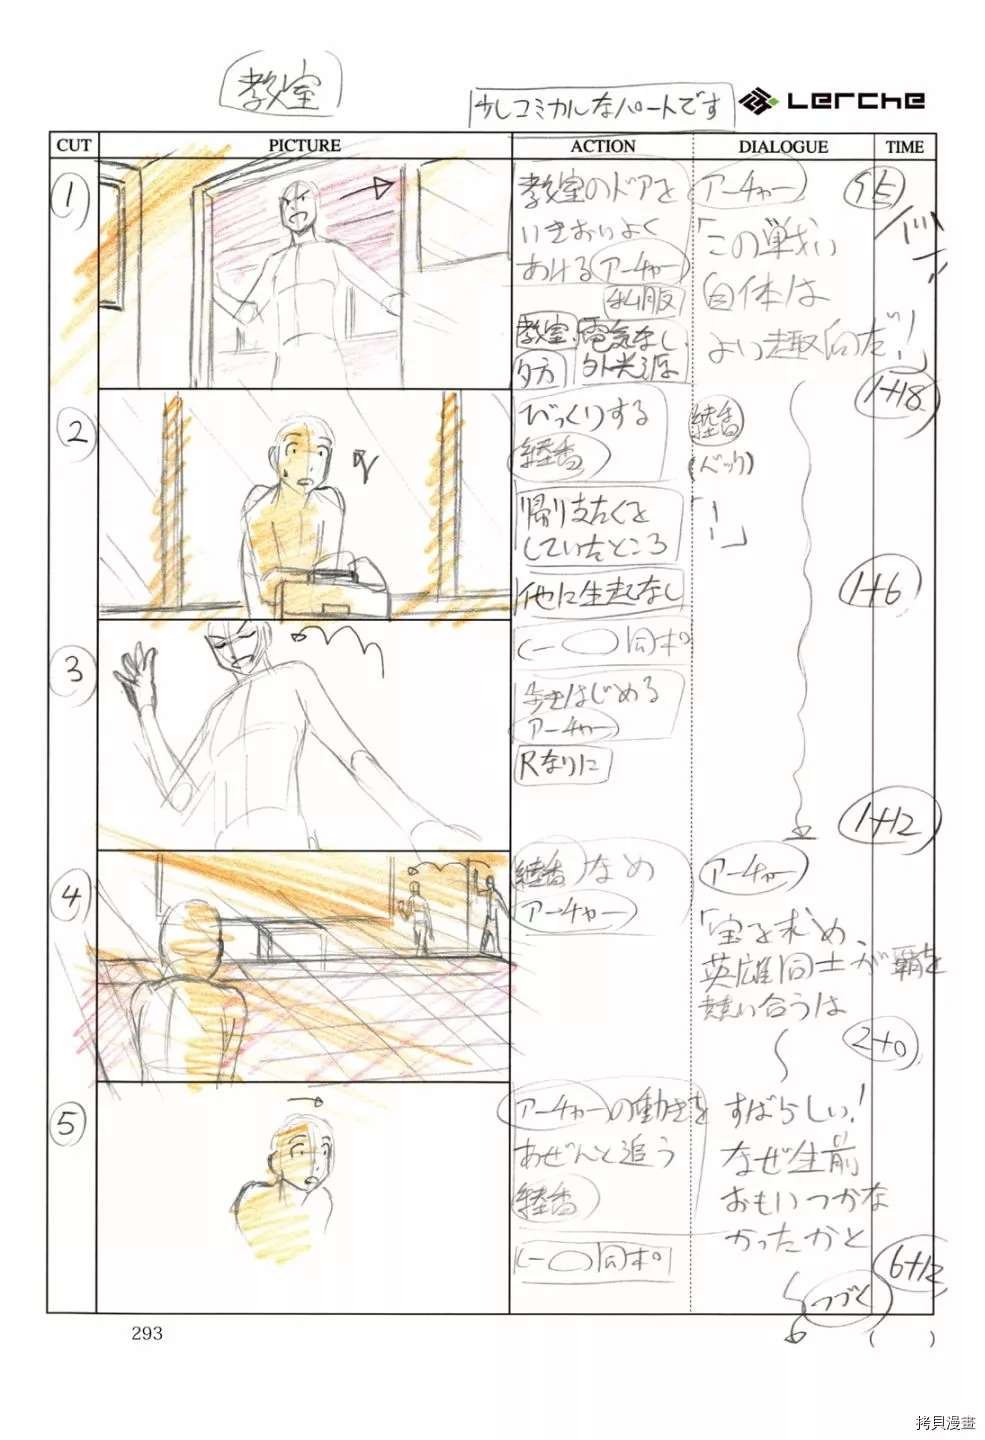 教室
少しコミカルなパートです
Lerche
CUT
PICTURE
ACTION
DIALOGUE
TIME
1
教室のドアを
いきおいよく
あける アーチャー
私服
教室 電気なし、
夕方 外光源
アーチャー
「この戦い
自体は
よい趣向だ!」
1+18
2
びっくりする
綾香
帰り支たくを
していたところ
他に生徒なし
綾香
「!」
1+6
3
同ポ
歩きはじめる
アーチャー
Rなりに
1+12
4
綾香 なめ
アーチャー
アーチャー
「宝を求め、
英雄同士が覇を
競い合うは
2+0
5
アーチャーの動きを
あぜんと追う
綾香
同ポ
すばらしい!
なぜ生前
おもいつかな
かったかと
6+12
つづく
( )
293
拷貝漫畫